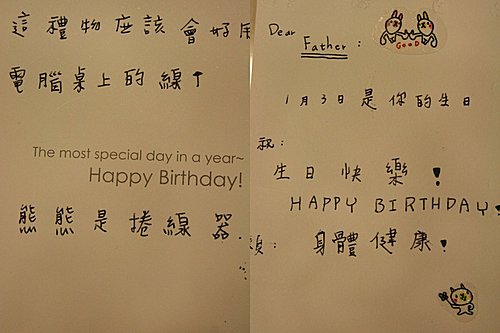 這禮物應該會好用
電腦桌上的線↑
The most special day in a year~
Happy Birthday!
熊熊是捲線器
Dear Father :
GOOD
1月3日是你的生日
祝：
生日快樂！
HAPPY BIRTHDAY!
身體健康！